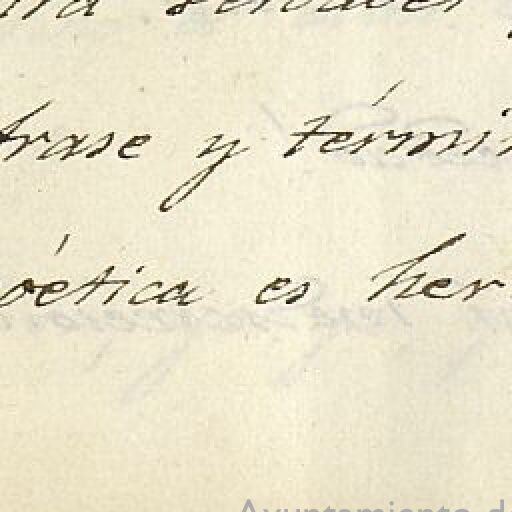 frase y térmi
oética es her
Ayuntamiento d